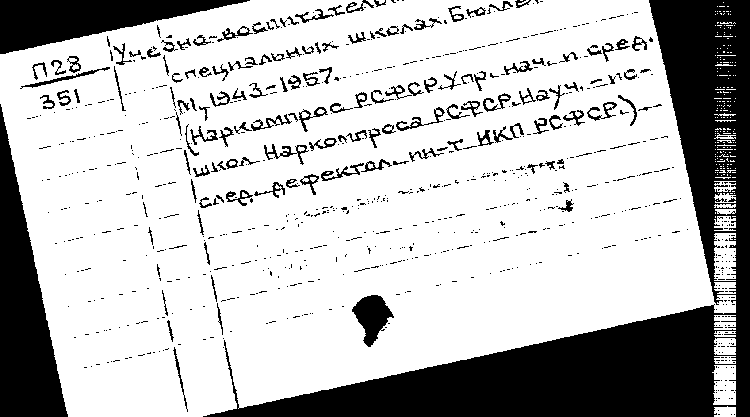 П28
351
Учебно-воспитатель
специальных школах. Бюлле
М., 1943-1957.
(Наркомпрос РСФСР. Упр. нач. и сред.
школ Наркомпроса РСФСР. Науч. - ис-
след. дефектол. ин-т НКП РСФСР.).-